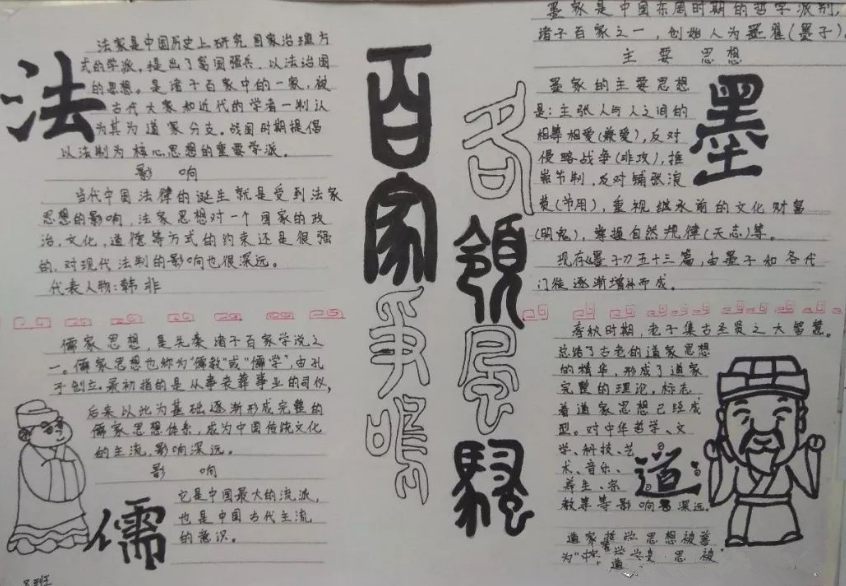 法
法家是中国历史上研究国家治理方
式的学派,提出了富国强兵、以法治国
的思想。是诸子百家中的一家,被
古代大家和近代的学者一制认
为其为道家分支。战国时期提倡
以法制为核心思想的重要学派。
影响
当代中国法律的诞生就是受到法家
思想的影响,法家思想对一个国家的政
治,文化,道德等方式的约束还是很强
的,对现代法制的影响也很深远。
代表人物:韩非
儒家思想,是先秦诸子百家学说之
一。儒家思想也称为“儒教”或“儒学”,由孔
子创立,最初指的是从事丧葬事业的司仪,
后来以此为基础逐渐形成完整的
儒家思想体系,成为中国传统文化
的主流,影响深远。
影响
它是中国最大的流派,
也是中国古代主流
的意识。
儒
百家争鸣
各领风骚
墨家是中国东周时期的哲学派别,
诸子百家之一,创始人为墨翟(墨子)。
主要思想
墨家的主要思想
是:主张人与人之间的
相等相爱(兼爱),反对
侵略战争(非攻),推
崇节制,反对铺张浪
费(节用),重视继承前的文化财富
(明鬼),掌握自然规律(天志)等。
现存《墨子》五十三篇,由墨子和各代
门徒逐渐增补而成。
墨
春秋时期,老子集古圣贤之大智慧。
总结了古老的道家思想
的精华,形成了道家
完整的理论,标志
着道家思想已经成
型。对中华哲学、文
学、科技、艺
术、音乐、
养生、宗
教等等影响深远。
道
道家哲学思想被
为“中
班